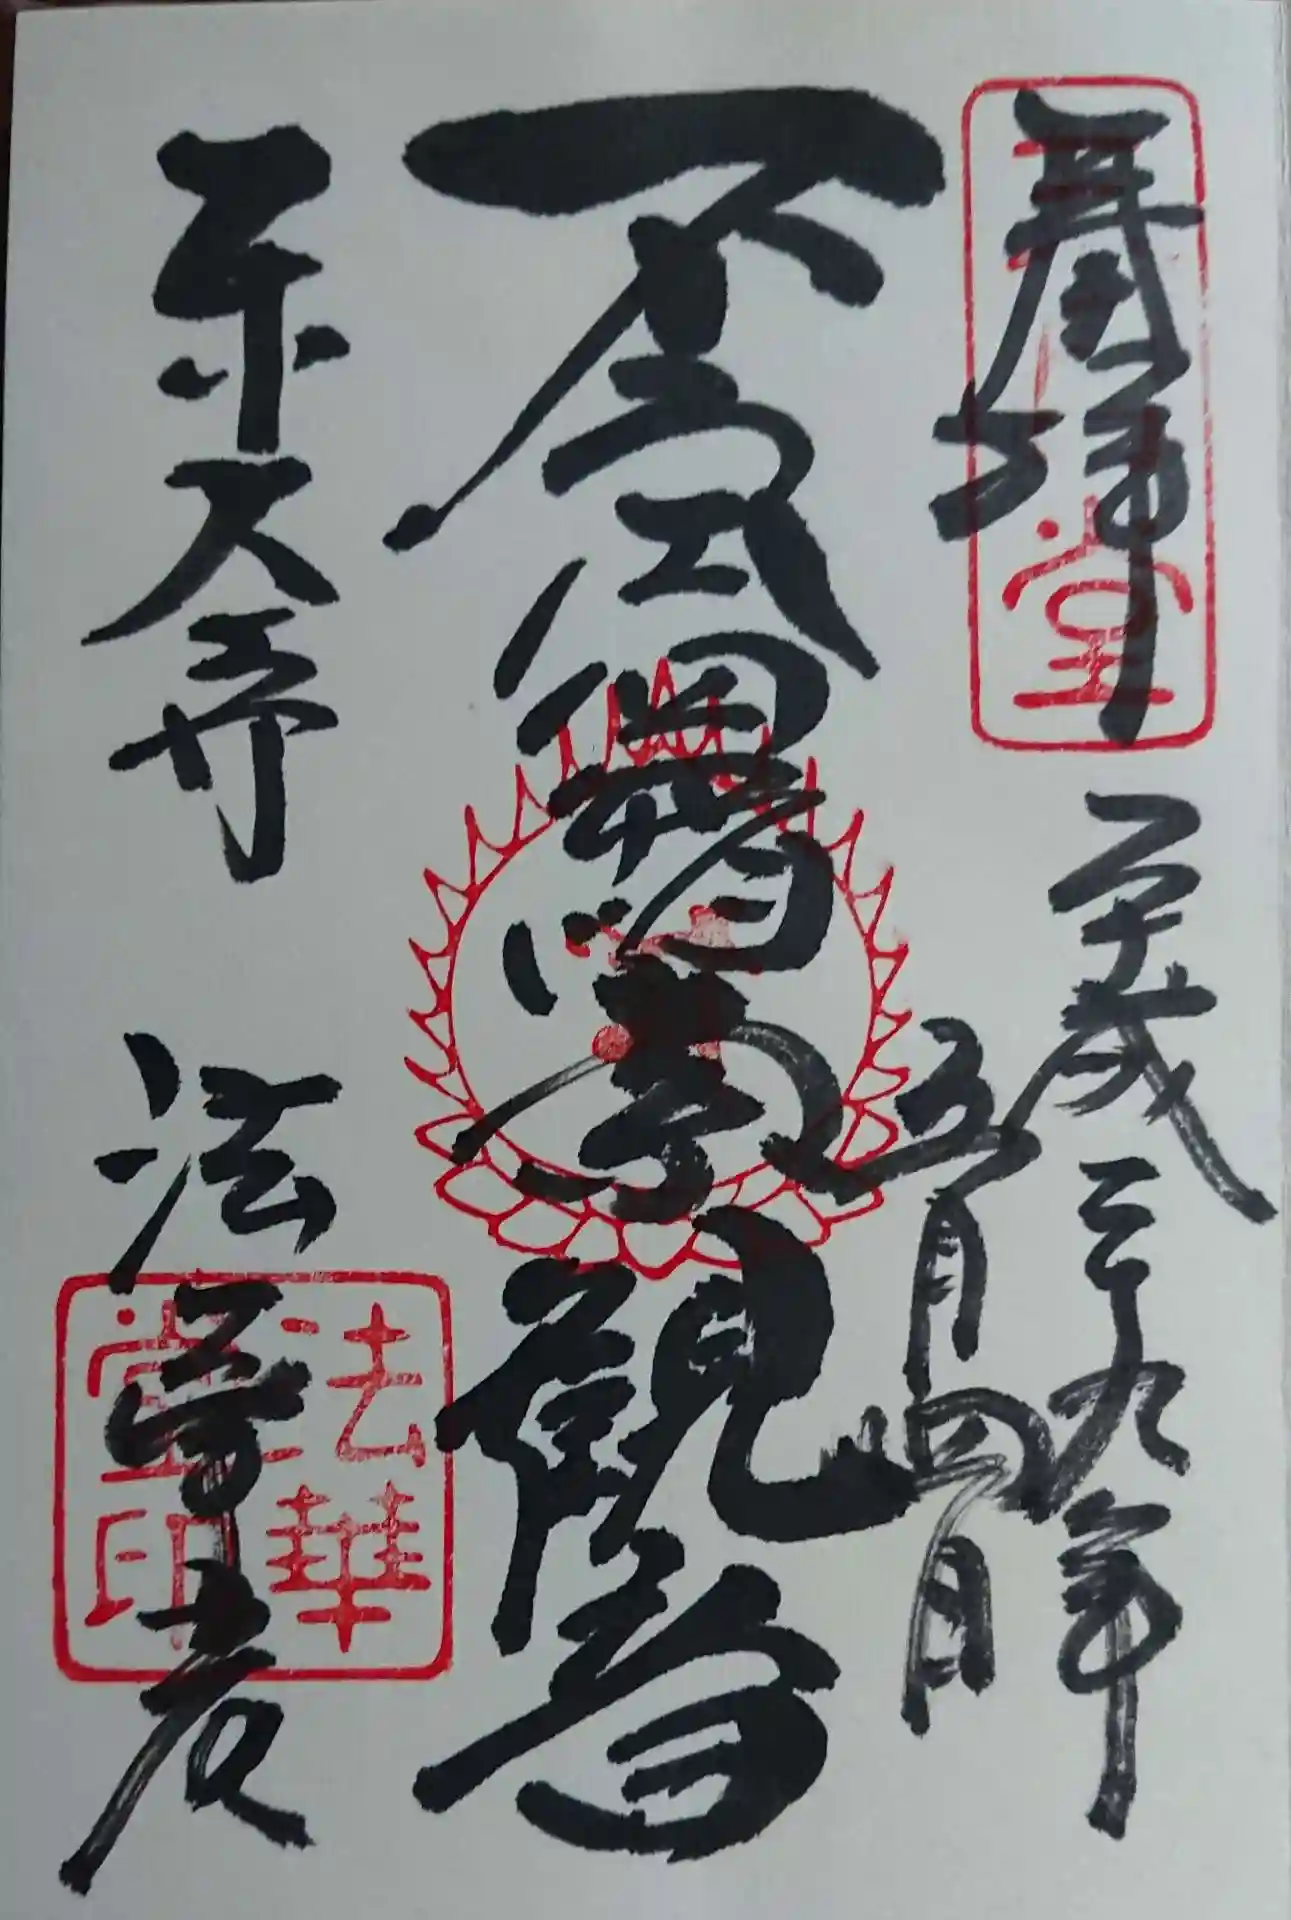 奉拝
平成二十九年
五月四日
不空羂索観音
東大寺
法華堂
三
堂
法華
堂印